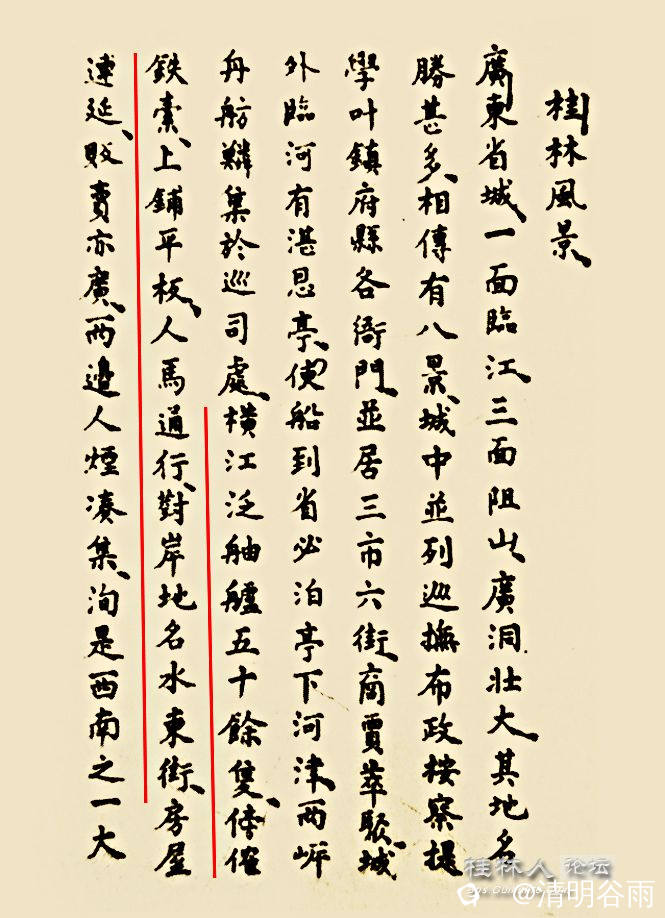 桂林風景
廣東省城、一面臨江、三面阻山、廣洞壯大、其地名
勝甚多、相傳有八景、城中並列巡撫布政桉察提
學叶鎮府縣各衙門、並居三市六街、商賈萃聚、城
外臨河有湛恩亭、使船到省必泊亭下河津、两岸
舟舫鱗集於巡司處、橫江泛舳艫五十餘隻、
鉄索、上鋪平板、人馬通行、對岸地名水東街、房屋
連延、販賣亦廣、兩邊人煙凑集、洵是西南之一大
桂林人论坛
@清明谷雨